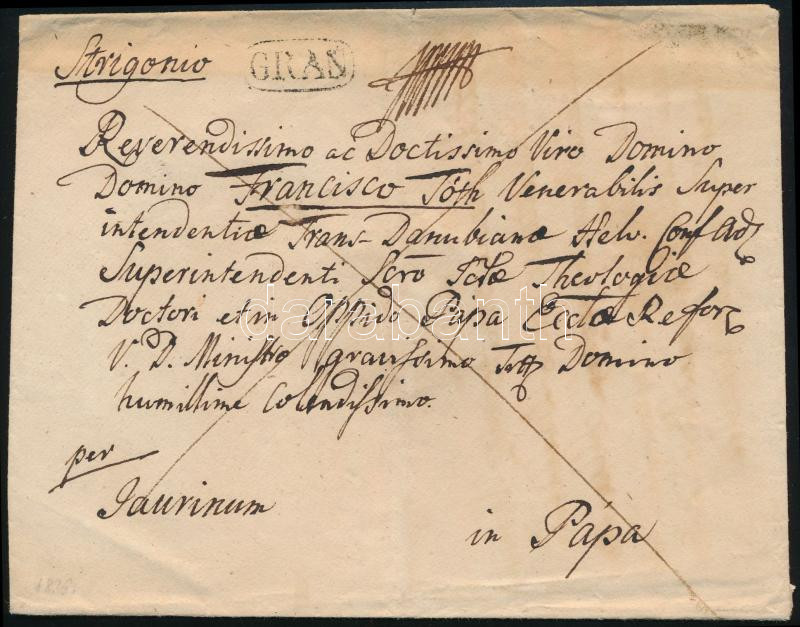 Strigonio GRAN
Reverendissimo ac Doctissimo Viro Domino
Domino Francisco Tóth Venerabilis Super
intendentiæ Trans-Danubianæ Helv. Conf
Superintendenti Scrō Theologiæ
Doctori et in Oppido Pápa Ecclæ Refor
V. D. Ministro gravissimo Domino
humillime Colendissimo.
darabanth
per
Jaurinum
in Pápa